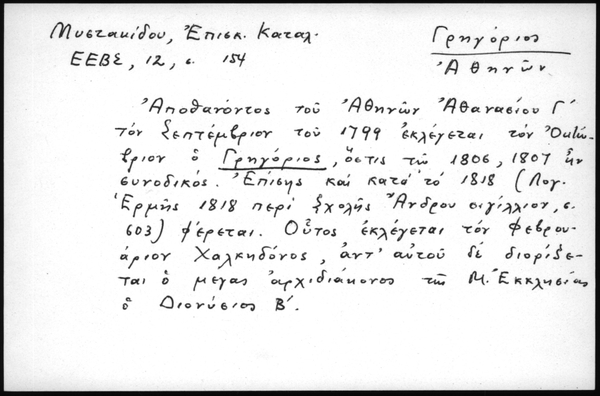 Μυστακίδου, Ἐπισκ. Καταλ.
Γρηγόριος
ΕΕΒΣ, 12, σ. 154
Ἀθηνῶν
Ἀποθανόντος τοῦ Ἀθηνῶν Ἀθανασίου Γ΄
τόν Σεπτέμβριον τοῦ 1799 ἐκλέγεται τόν Ὀκτώ-
βριον ὁ Γρηγόριος, ὅστις τῷ 1806, 1807 ἦν
συνοδικός. Ἐπίσης καί κατά τό 1818 (Λογ.
Ἑρμῆς 1818 περί Σχολῆς Ἄνδρου σιγίλλιον, σ.
603) φέρεται. Οὗτος ἐκλέγεται τόν Φεβρου-
άριον Χαλκηδόνος, ἀντ' αὐτοῦ δέ διορίζε-
ται ὁ μέγας ἀρχιδιάκονος τῆς Μ. Ἐκκλησίας
ὁ Διονύσιος Β΄.